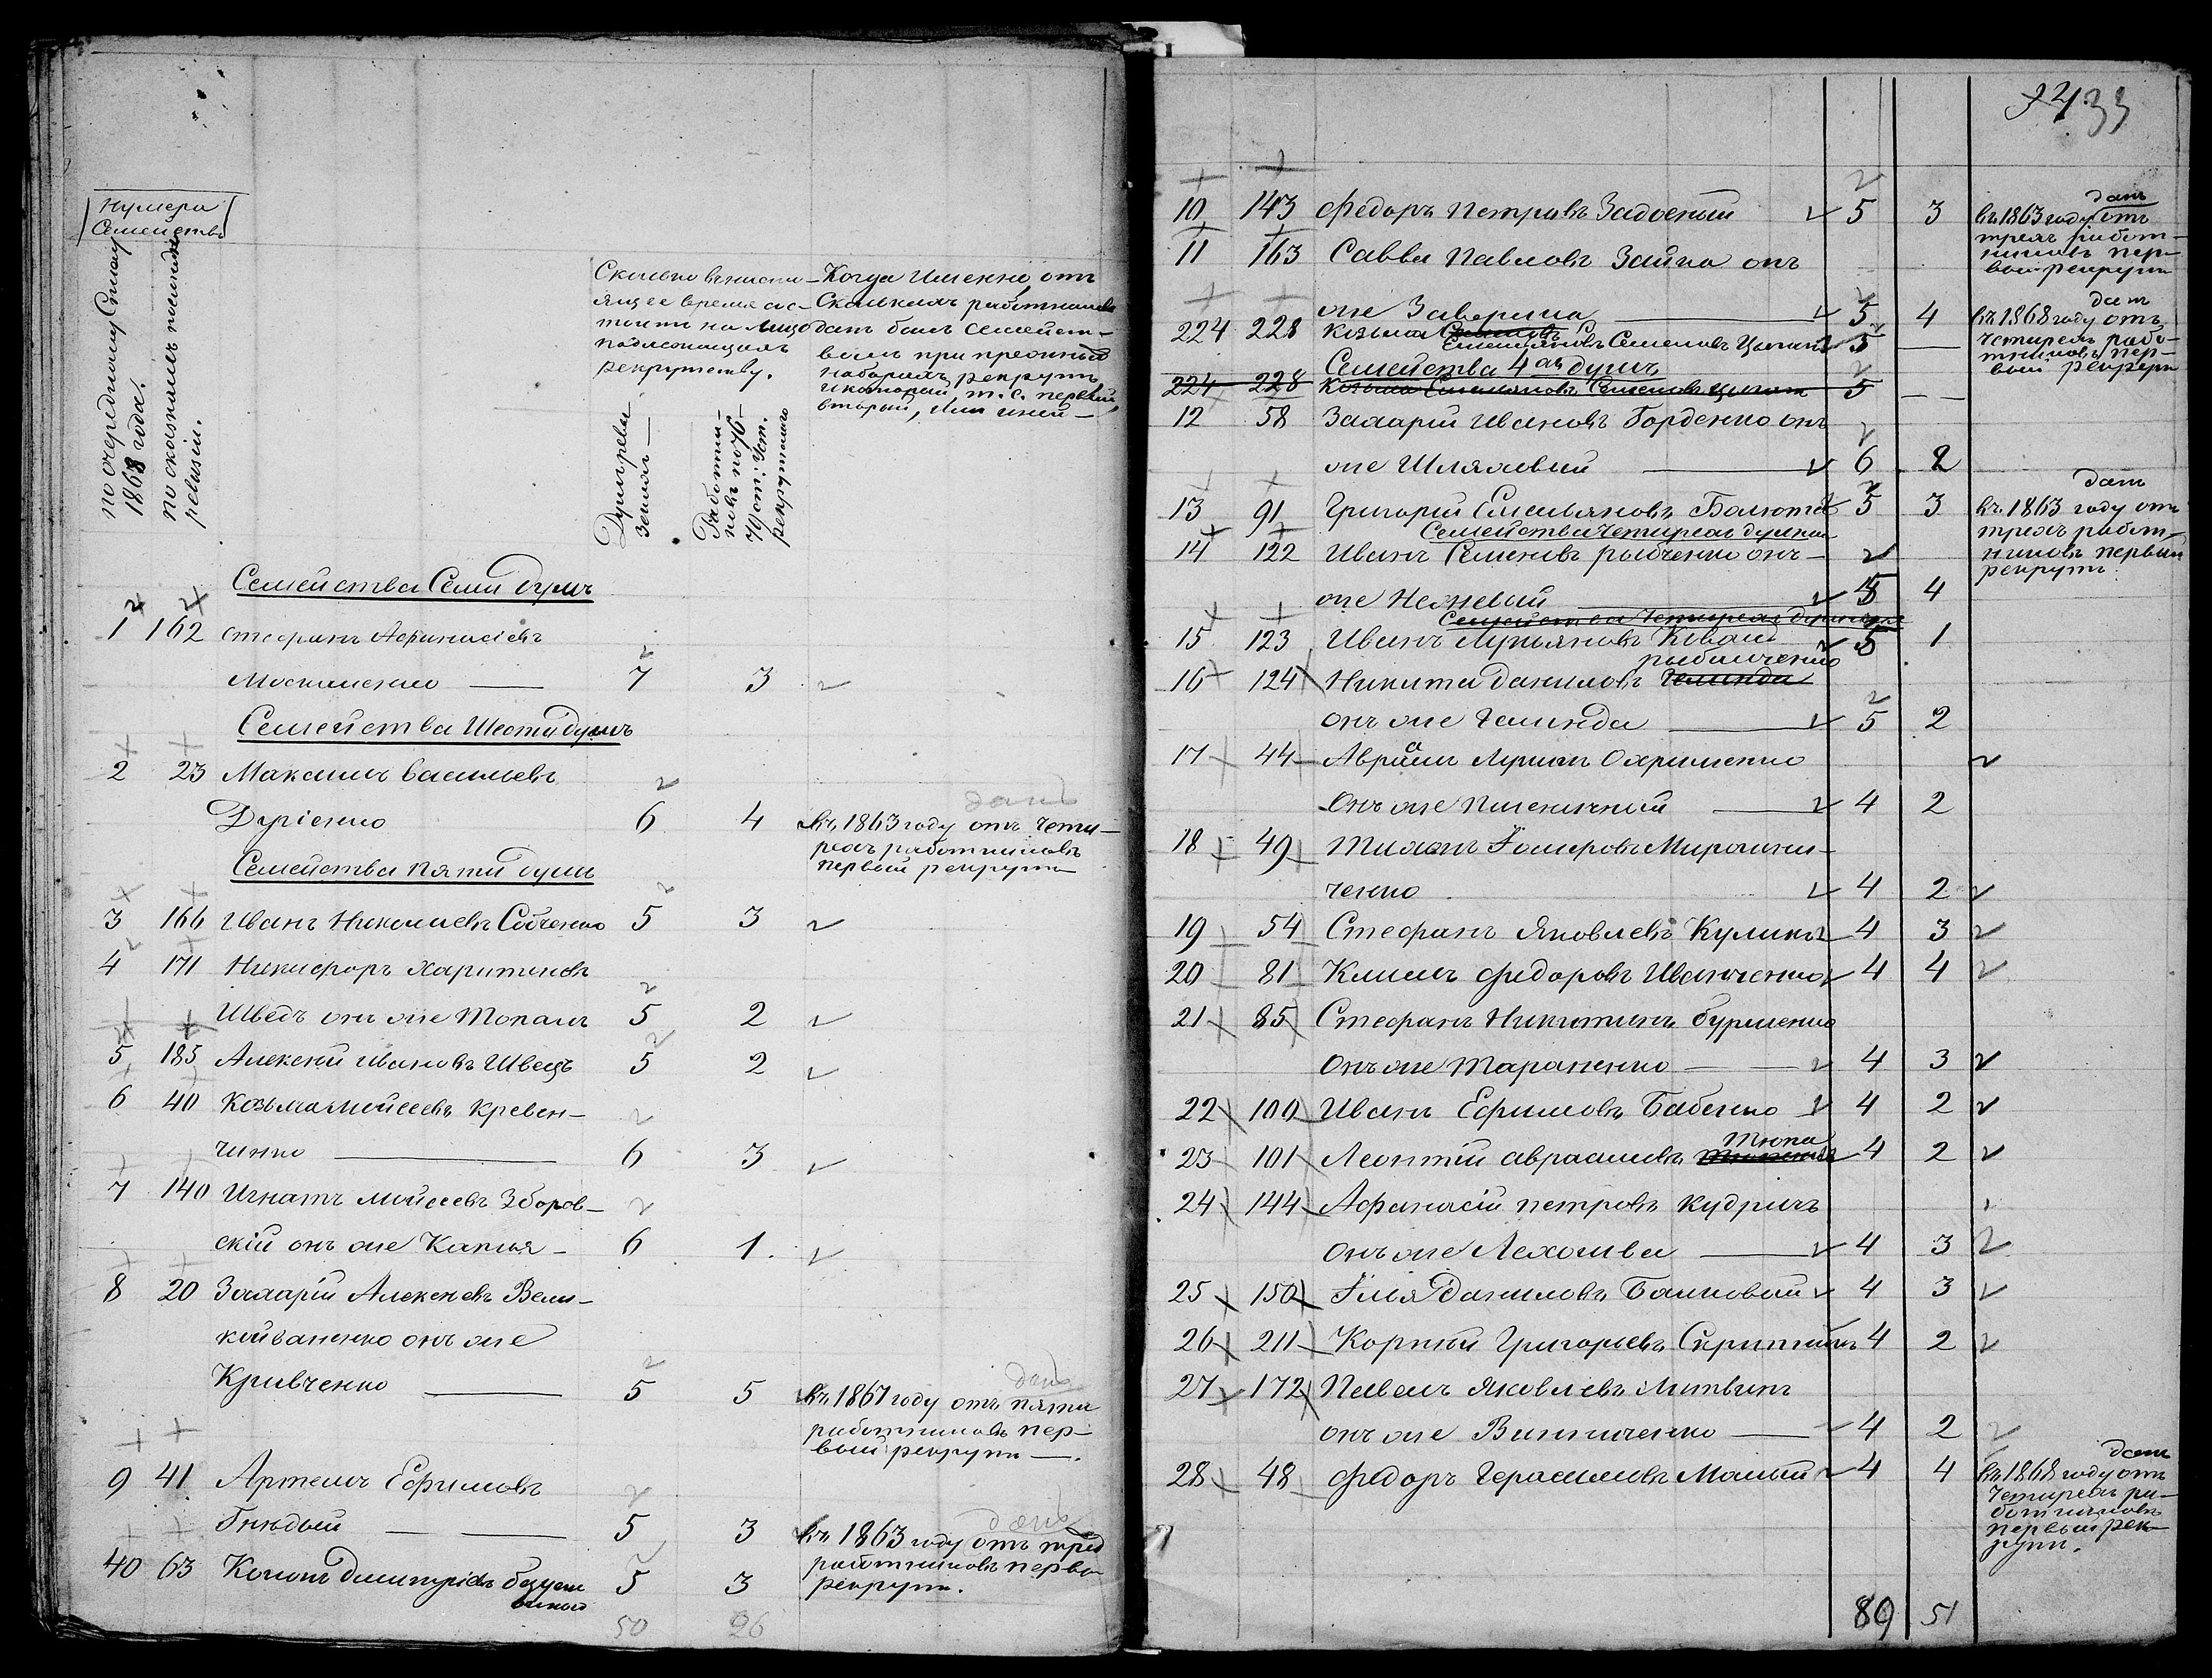 Нумера
Семействъ
по очередному Списку
1868 года.
по сказкамъ последней
ревизіи.
Сколько въ насто-
ящее время сос-
тоитъ на лицо
подлежащихъ
рекрутству.
Душъ реви-
зскихъ
Работни-
ковъ по 76
79 ст: Уст.
рекрутскаго
Когда Именно, отъ
Сколькихъ работниковъ
датъ былъ семейст-
вомъ при прежныхъ
наборахъ рекрутъ
и который, т. е. первый,
вторый, или иной
Семейства Семи душъ
1 162 Стефанъ Афанасіевъ
Москаленко — 7 3
Семейства Шести душъ
2 23 Максимъ Васильевъ
Дуріенко 6 4 въ 1863 году отъ чети-
данъ
рехъ работниковъ
первый рекрутъ
Семейства пяти душъ
3 166 Иванъ Николаевъ Собченко 5 3
4 171 Никифоръ Харитоновъ
Шведъ онъ же Топалъ 5 2
5 185 Алексей Ивановъ Швецъ 5 2
6 40 Козьма Мойсеевъ Кревен-
чинко — 6 3
7 140 Игнатъ Мойсеевъ Зборов-
скій онъ же Капья — 6 1.
8 20 Захарій Алексеевъ Вели-
коиваненко онъ же
Кривченко — 5 5 въ 1867 году отъ пяти
данъ
работниковъ пер-
вый рекрутъ —.
9 41 Артемъ Ефимовъ
Гнѣдый — 5 3 въ 1863 году отъ трех
данъ
работниковъ первы
рекрутъ.
40 63 Димитріевъ 5 3
50 26
33
10 143 Федоръ Петровъ Задоеный 5 3 въ 1863 году отъ
датъ
трехъ работ-
никовъ пер-
вый рекрутъ
11 163 Савва Павловъ Заика онъ
же Заверуха — 5 4 въ 1868 году отъ
датъ
четирехъ рабо-
тниковъ пер-
вый рекрутъ
224 228 Козьма
Емельяновъ Семеновъ 5 —
Семейства 4хъ душъ
224 228 Козьма Емельяновъ Семеновъ 5 — —
12 58 Захарій Ивановъ Горденко онъ
же Шляховый — 6 2
13 91 Григорій Емельяновъ Болотов 5 3 въ 1863 году отъ
датъ
трехъ работ-
никовъ первый
рекрутъ
Семейства Четирехъ душъ
14 122 Иванъ Семеновъ рыбченко онъ-
же Нежевый — 5 4
Семейства Четирехъ
15 123 Иванъ Лукьяновъ Коваль 5 1
рыбалченко
16 124 Никита Даниловъ Чалинда
онъ же Чалинда — 5 2
17 44 Авраамъ Лукинъ Охрименко
Онъ же Пшеничный — 4 2
18 49 Тихонъ Мирошни-
ченко 4 2
19 54 Стефанъ Яковлевъ Куликъ 4 3
20 81 Климъ Федоровъ Иванченко 4 4
21 85 Стефанъ Никитинъ Бурленко
Онъ же Тараненко — 4 3
22 100 Иванъ Ефимовъ Бабенко 4 2
23 101 Леонтій Авраамовъ Тюпа 4 2
24 144 Афанасій Петровъ Кудричъ
Онъ же Лехошва — 4 3
25 150 Даниловъ Балковый 4 3
26 211 Корній Григорьевъ 4 2
27 172 Павелъ Яковлевъ Литвинъ
онъ же Винниченко — 4 2
28 48 Федоръ Герасимовъ Малый 4 4 въ 1868 году отъ
датъ
Четирехъ ра-
ботниковъ
первый рек-
рутъ.
89 51